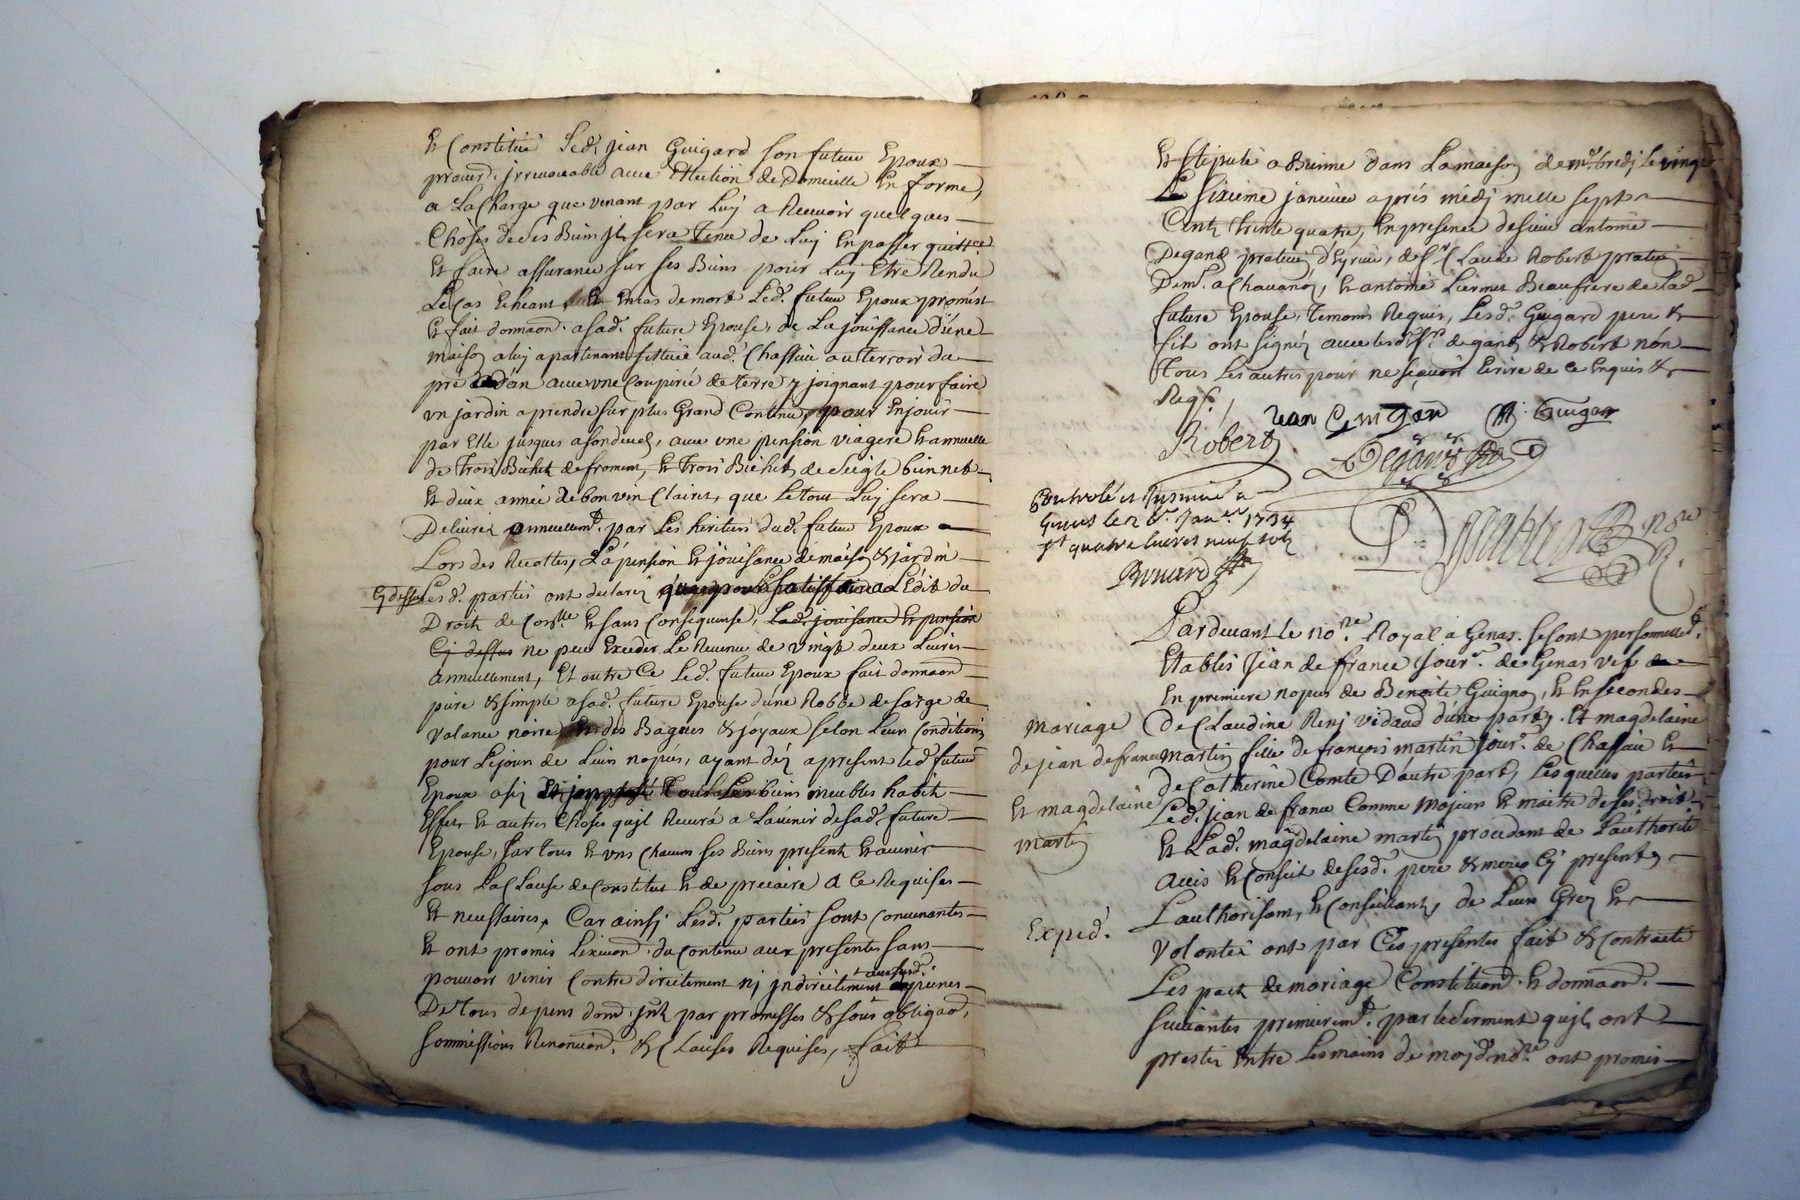 Et Constitué Led. jean Guigard son futeur Epoux
procur. irrevocable avec Ellection de Domicille En forme,
a La Charge que venant par Luy a Recevoir quelques
Choses de ses Biens jl sera Tenu de Luy En passer quittce
Et faire assurance sur ses Biens pour Luy Etre Rendu
Le Cas Echeant, Et En cas de mort Led. futeur Epoux promist
Et fait donnaon. a sad. future Epouse, de La jouissance d'une
maison a luy apartenant sittuée aud. Chassieu au terroir du
pré dan avec une Coupirée de terre y joignant pour faire
un jardin a prendre sur plus Grand Contenu, pour En jouir
par Elle jusques a son deces, avec une pension viagere Et annuelle
de Trois Bichets de froment, Et Trois Bichets de Seigle bien net
Et deux année de bon vin Clairet, que Le tout Luy sera
Delivré annuellemt. par Les heritiers dud. futeur Epoux
Lors des Recottes, La pension Et jouisance de maison & jardin
Cy dessus Lesd. parties ont declaré que pour satisffaire a L'Edit du
Droit de Conlle Et sans Consequense, Lad. jouisance Et pension
Cy dessus ne peu Exceder Le Revenu de vingt deux Livres
Annuellement, Et outre Ce Led. futeur Epoux fait donnaon
pure & simple a sad. future Epouse d'une Robbe de sarge de
Valance noire des Bagues & joyaux selon Leur Condition
pour Lejour de Leurs nopces, ayant déz a present led. futeur
Epoux Tous Les biens meubles habit
Effets Et autres Choses qu'jl Recevra a L'avenir de sad. future
Epouse, sur tous Et uns Chacuns ses Biens present Et avenir
sous La Clause de Constitut Et de precaire a Ce Requises
Et necessaires, Car ainsy Lesd. parties sont Convenantes
Et ont promis L'execuon. du Contenu aux presentes sans
pouvoir venir Contre directement nj jndirectement aux susd. peines
De tous depens dom. jnts par promesses & sous obligaon,
sommissions Renonciaon. & Clauses Requises, fait
Et Stipulé a dans La maison de le vingt
Sixieme janvier aprés midj mille sept
Cents trente quatre, En presence de sieur antoine
Degand praticien d'Eyrieu, de Sr Claude Robert praticien
Demt. a Chavanoz, Et antoine Liermet Beaufrere de Lad
future Epouse, Temoins Requis, Lesd. Guigard pere &
fils ont signéz avec lesd. Srs. degand & Robert non
Tous Les autres pour ne sçavoir Ecrire de Ce Enquis &
Reqs.
Jean Guigar Guigar
Robert Degand
Controlé et Insinué a
Genas le 26e. Janer 1734
rt quatre livres neuf sols
Par devant le nore. Royal a Genas. se sont personnellet.
Etablis Jean de france jourr. de Genas vef
En premiere nopces de Benoite Guigno, Et En secondes
De Claudine Renj vidaud d'une part, Et magdelaine
martin fille de françois martin jourr. de Chassieu Et
de Catherine Comte D'autre part, Lesquelles parties
Led. jean de france Comme majeur Et maitre de ses droits
Et Lad. magdelaine martin procedant de L'authorité
avis Et Conseil de sesd. pere & mere Cy presents
L'authorisant, Et Conseillant, de Leurs Gréz Et
Volontéz ont par Ces presentes fait & Contracté
Les pact de mariage Constituon. Et donnaon.
suivantes premieremt. par le serment qu'jls ont
prestéz Entre Les mains de moyd. nore. ont promis
Mariage
de jean de france
Et magdelaine
martin
Exped.